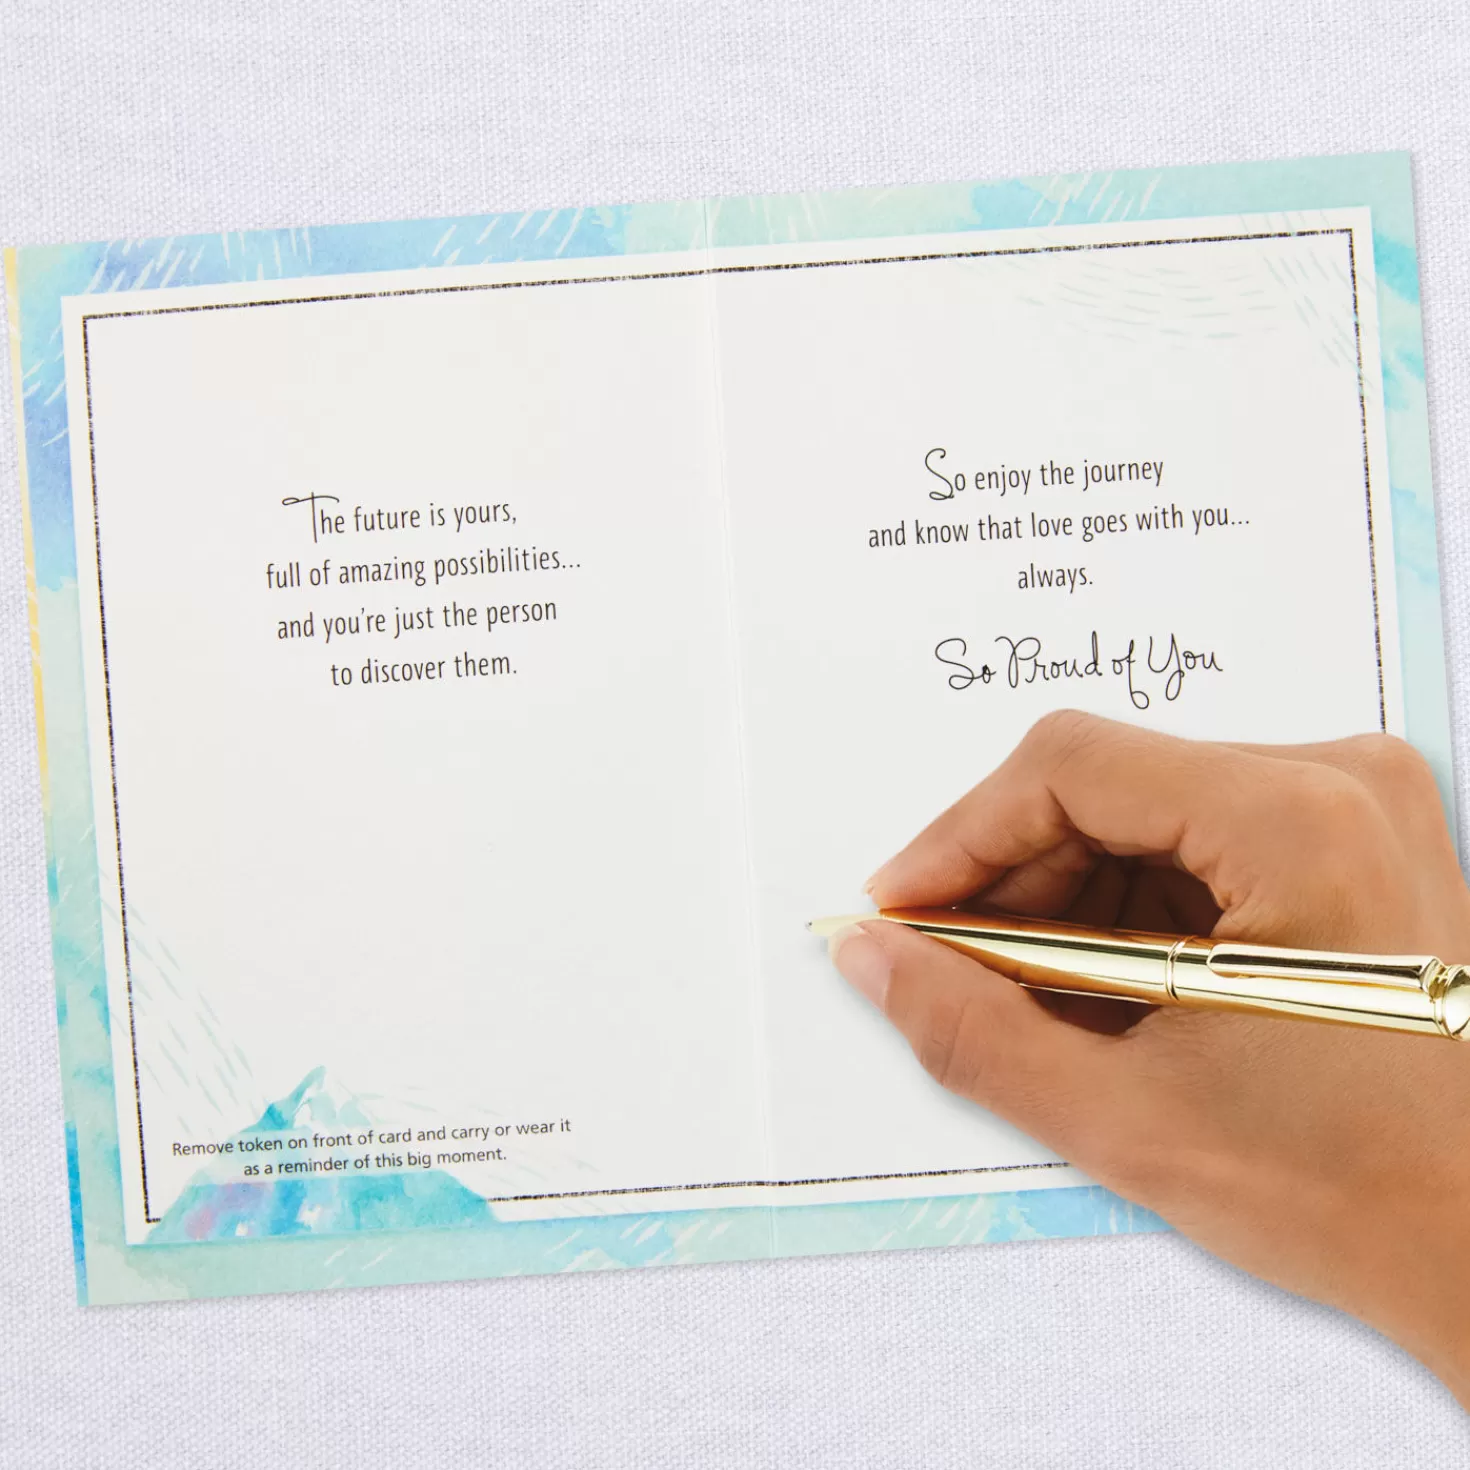 The future is yours,
full of amazing possibilities...
and you're just the person
to discover them.
Remove token on front of card and carry or wear it
as a reminder of this big moment.
So enjoy the journey
and know that love goes with you...
always.
So Proud of You